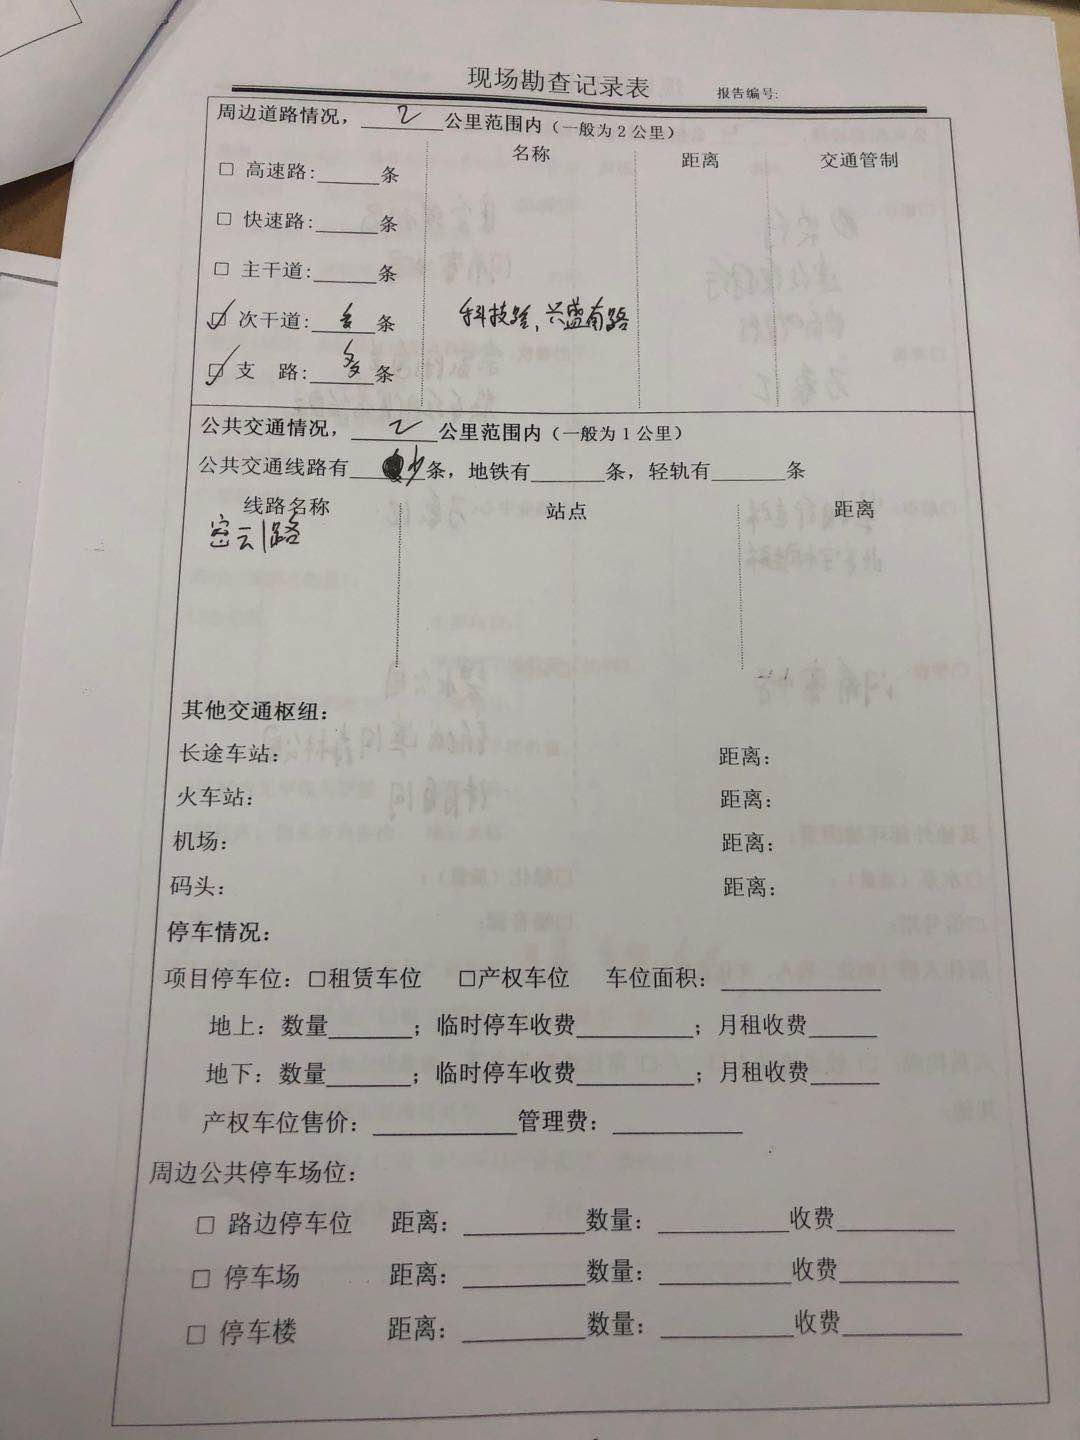 现场勘查记录表
报告编号:
周边道路情况，2公里范围内（一般为2公里）
名称 距离 交通管制
□ 高速路:______条
□ 快速路:______条
□ 主干道:______条
☑ 次干道: 多 条 科技路、兴盛南路
☑ 支 路: 多 条
公共交通情况，2公里范围内（一般为1公里）
公共交通线路有 少条，地铁有______条，轻轨有______条
线路名称 站点 距离
密云1路
其他交通枢纽：
长途车站： 距离：
火车站： 距离：
机场： 距离：
码头： 距离：
停车情况：
项目停车位：□租赁车位 □产权车位 车位面积：____________
地上：数量______；临时停车收费________；月租收费______
地下：数量______；临时停车收费________；月租收费______
产权车位售价：__________管理费：__________
周边公共停车场位：
□ 路边停车位 距离：________数量：________收费________
□ 停车场 距离：________数量：________收费________
□ 停车楼 距离：________数量：________收费________